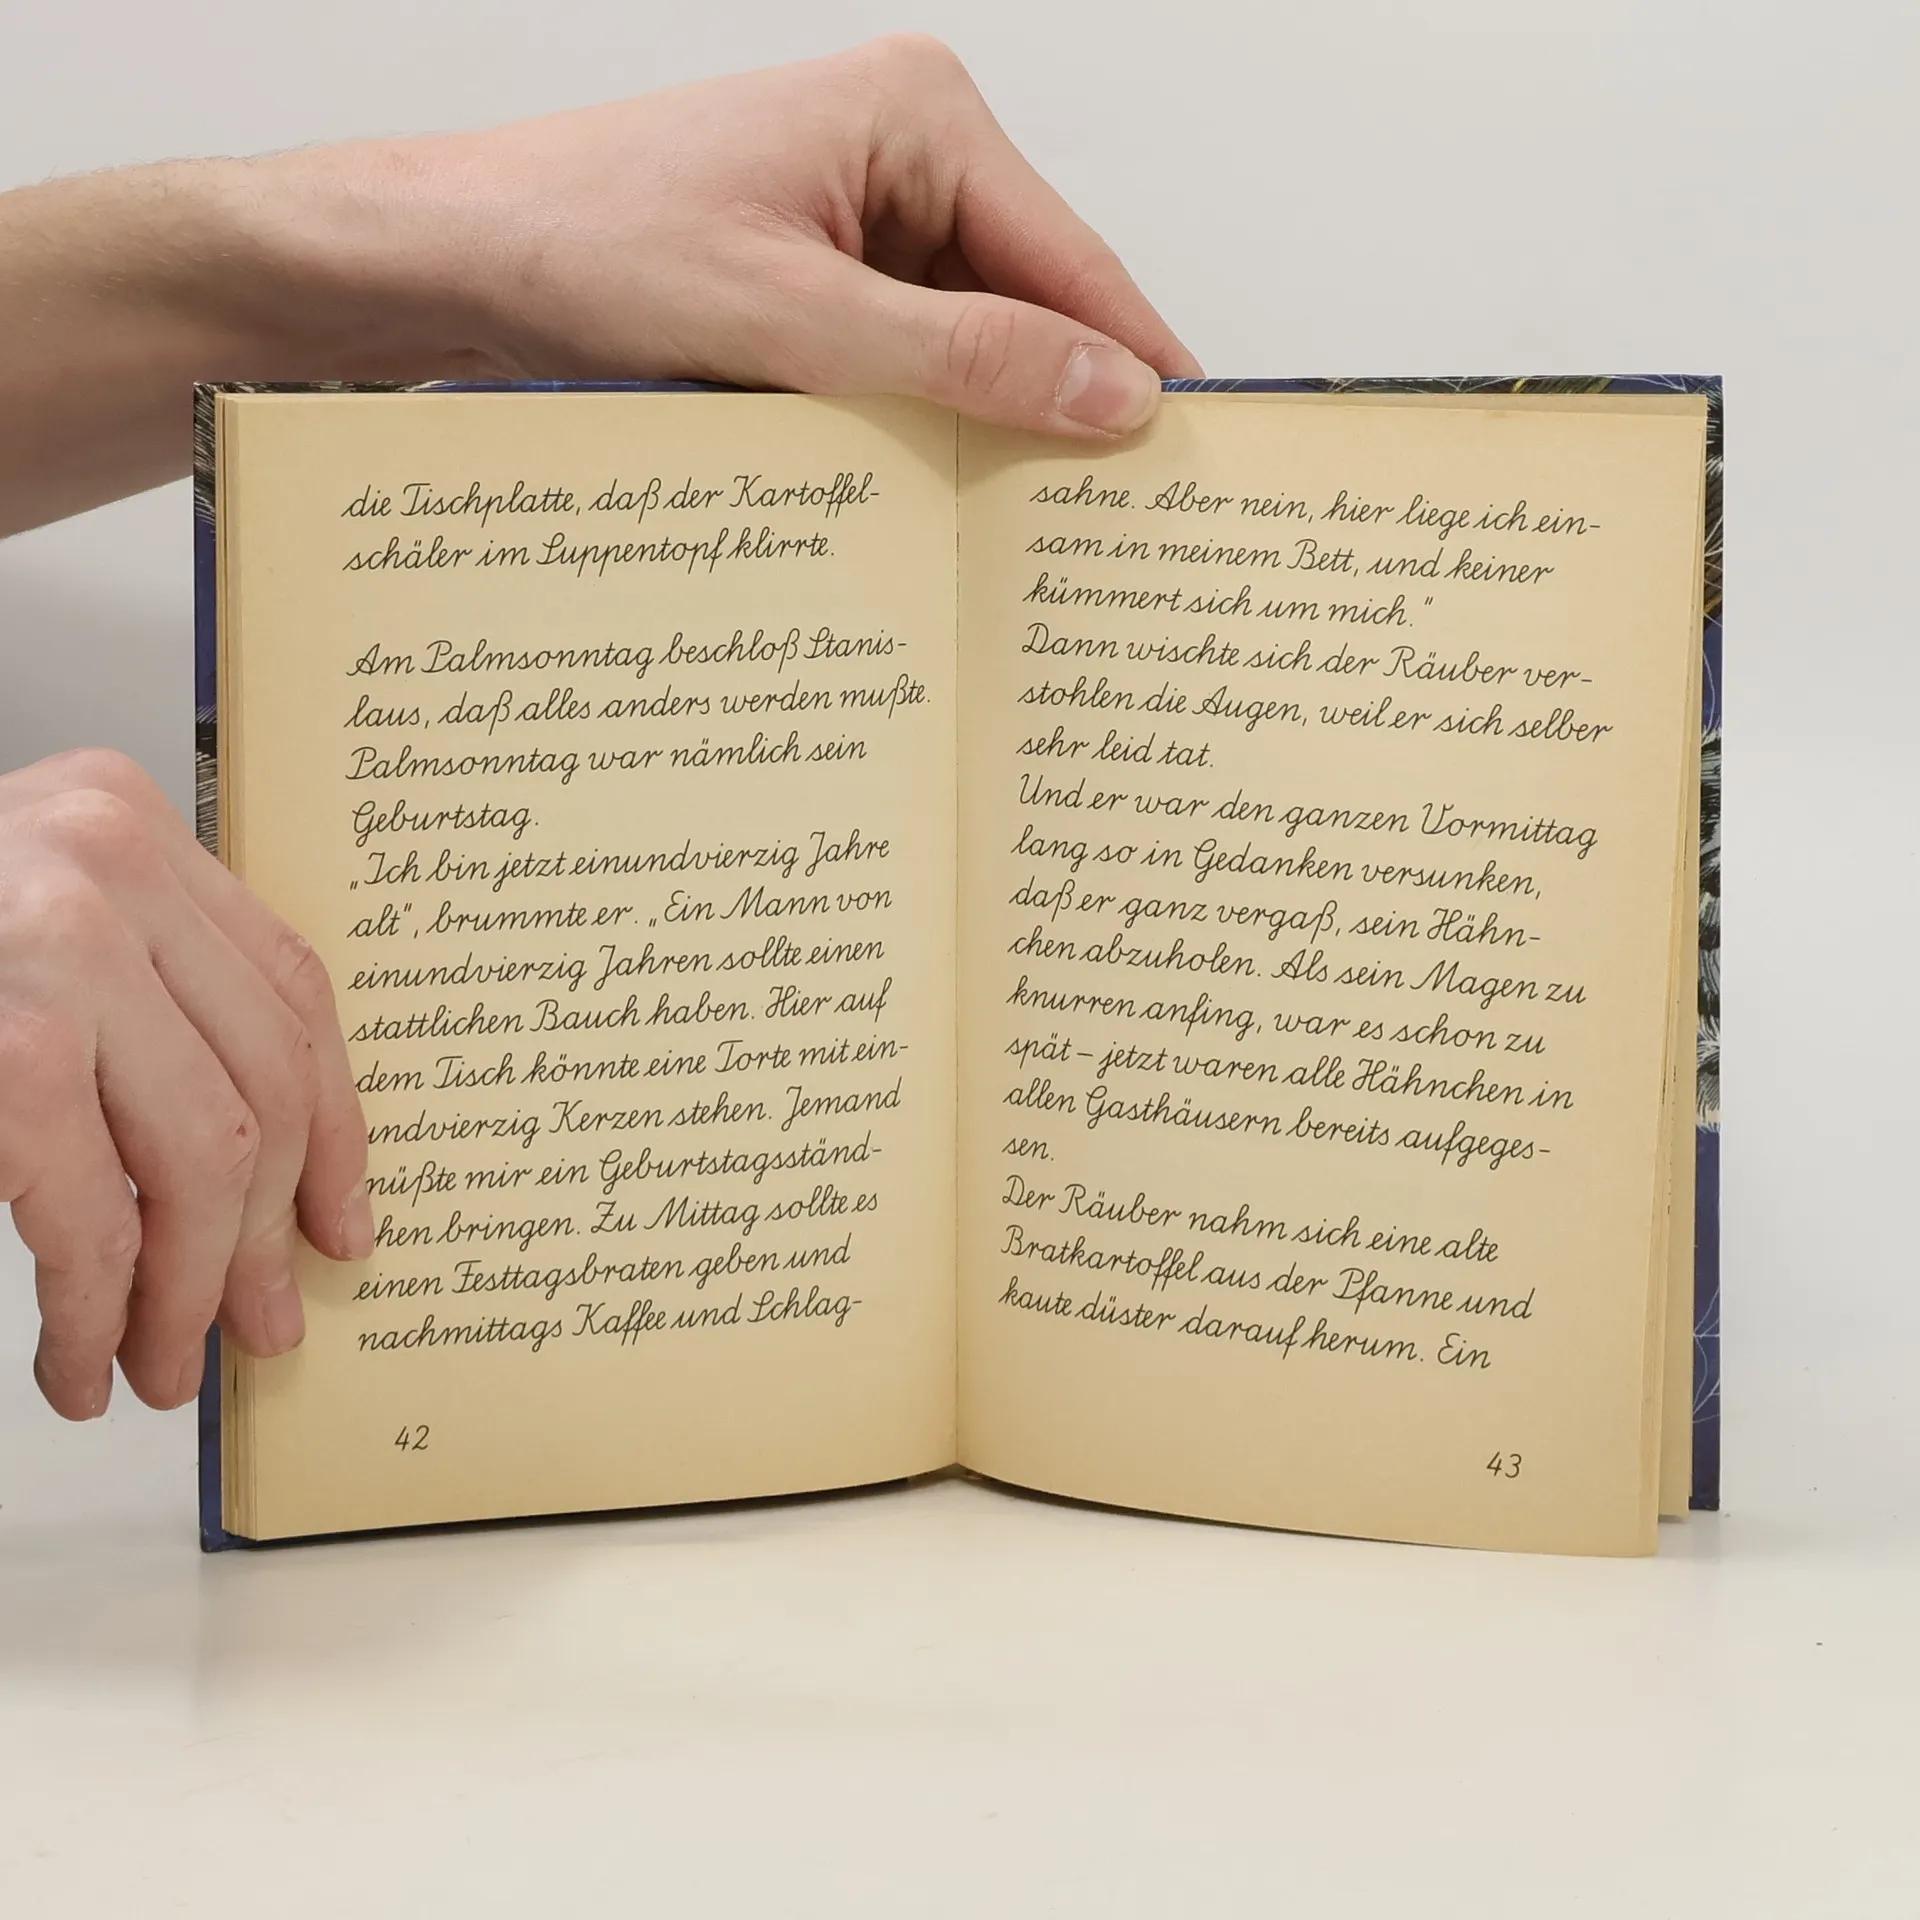 die Tischplatte, daß der Kartoffel-
schäler im Suppentopf klirrte.
Am Palmsonntag beschloß Stanis-
laus, daß alles anders werden mußte.
Palmsonntag war nämlich sein
Geburtstag.
„Ich bin jetzt einundvierzig Jahre
alt", brummte er. „Ein Mann von
einundvierzig Jahren sollte einen
stattlichen Bauch haben. Hier auf
dem Tisch könnte eine Torte mit ein-
undvierzig Kerzen stehen. Jemand
müßte mir ein Geburtstagsständ-
chen bringen. Zu Mittag sollte es
einen Festtagsbraten geben und
nachmittags Kaffee und Schlag-
42
sahne. Aber nein, hier liege ich ein-
sam in meinem Bett, und keiner
kümmert sich um mich."
Dann wischte sich der Räuber ver-
stohlen die Augen, weil er sich selber
sehr leid tat.
Und er war den ganzen Vormittag
lang so in Gedanken versunken,
daß er ganz vergaß, sein Hähn-
chen abzuholen. Als sein Magen zu
knurren anfing, war es schon zu
spät – jetzt waren alle Hähnchen in
allen Gasthäusern bereits aufgeges-
sen.
Der Räuber nahm sich eine alte
Bratkartoffel aus der Pfanne und
kaute düster darauf herum. Ein
43